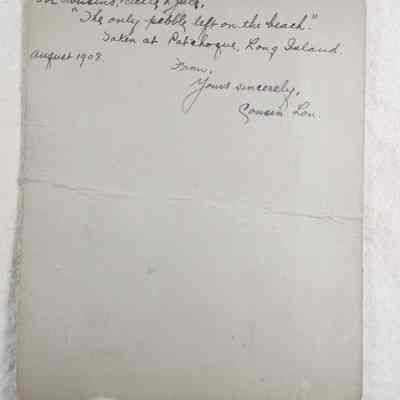 "The only pebble left on the beach".
Taken at Patchogue, Long Island.
August 1908.
From,
Yours sincerely,
Cousin Lou.